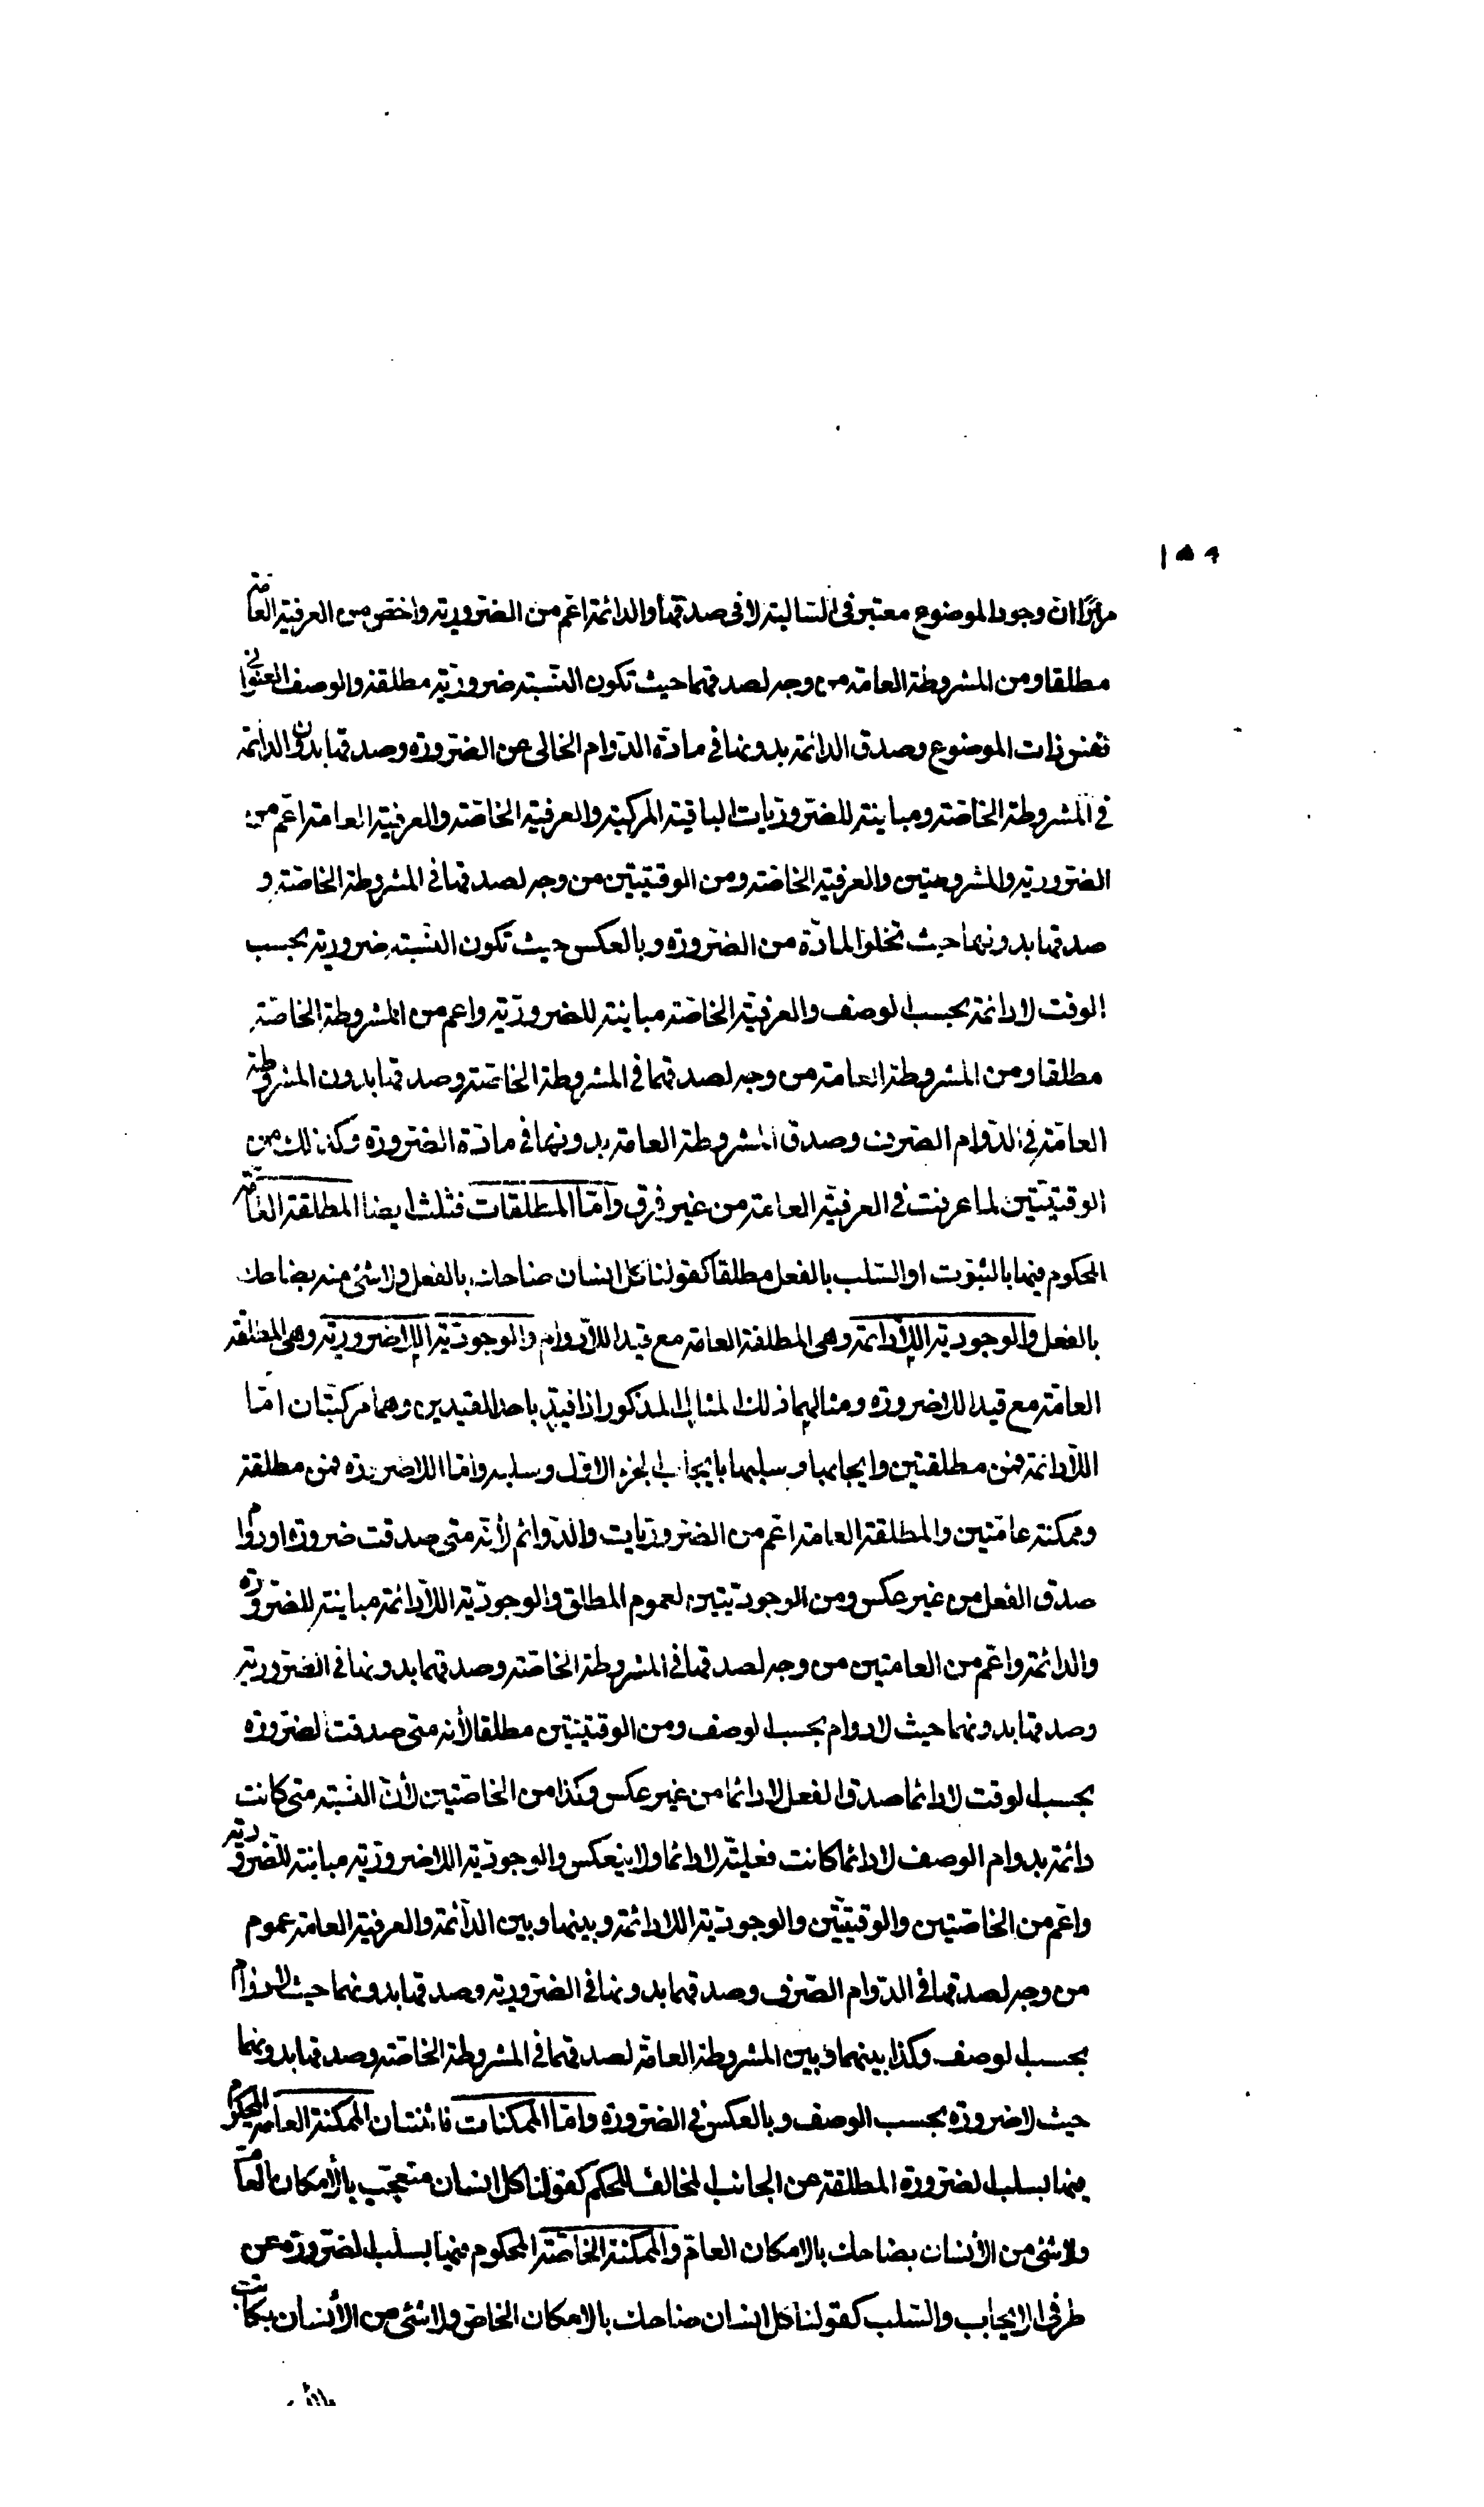 ١٥٩
مرارًا ان وجود الموضوع معتبر في السّالبة لا في صدقها والدائمة اعّم من الضّروريّة واخصّ من العرفية العامّة
مطلقا ومن المشروطة العامّة من وجه لصدقهما حيث تكون النّسبة ضروريّة مطلقة والوصف العنوانى
نفس ذات الموضوع وصدق الدائمة بدونها في مادّة الدّوام الخالى عن الضّرورة وصدقها بدون الدائمة
في المشروطة الخاصّة ومباينة للضّروريّات الباقية المركبة والعرفية الخاصّة والعرفية العامة اعّم من
الضّروريّة والمشروطتين والعرفية الخاصّة ومن الوقتيتين من وجه لصدقها في المشروطة الخاصّة و
صدقها بدونها حيث تخلوا المادّة من الضّرورة وبالعكس حيث تكون النّسبة ضرورية بحسب
الوقت لا دائمة بحسب الوصف والعرفيّة الخاصّة مباينة للضروريّة واعم من المشروطة الخاصّة
مطلقا ومن المشروطة العامة من وجه لصدقهما في المشروطة الخاصّة وصدقها بدون المشروطة
العامّة في الدّوام الصّرف وصدق المشروطة العامة بدونها في مادّة الضّرورة وكذلك من
الوقتيّتين لما عرفت في العرفيّة العامّة من غير فرق وامّا المطلقات فثلث ايضا المطلقة العامّة
المحكوم فيها بالثبوت او السّلب بالفعل مطلقا كقولنا كل انسان ضاحك بالفعل ولا شئ منه بضاحك
بالفعل والوجودية اللّادائمة وهى المطلقة العامة مع قيد اللّادوام والوجوديّة اللاضروريّة وهى المطلقة
العامّة مع قيد اللاضرورة ومثالهما ذلك المثال المذكور اذا قيّد باحد القيدين وهما مركبتان امّا
اللّادائمة فمن مطلقتين وايجابها وسلبها بايجاب الجزء الاوّل وسلبه وامّا اللاضرورة فمن مطلقة
وممكنة عامّتين والمطلقة العامة اعّم من الضّروريّات والدّوائم لأنّه متى صدقت ضرورة او دوام
صدق الفعل من غير عكس ومن الوجوديّتين لعموم المطلق والوجوديّة اللّادائمة مباينة للضّرورة
والدائمة واعّم من العامتين من وجه لصدقها في المشروطة الخاصّة وصدقهما بدونها في الضّرورية
وصدقها بدونهما حيث لا دوام بحسب الوصف ومن الوقتيتين مطلقا لأنه متى صدقت الضّرورة
بحسب الوقت لا دائما صدق الفعل لا دائما من غير عكس وكذا من الخاصّتين لأنّ النّسبة متى كانت
دائمة بدوام الوصف لا دائما كانت فعليّة لا دائما ولا ينعكس والوجوديّة اللاضروريّة مباينة للضّروريّة
واعّم من الخاصّتين والوقتيتّين والوجوديّة اللادائمة وبينها وبين الدّائمة والعرفية العامة عموم
من وجه لصدقها في الدّوام الصّرف وصدقهما بدونها في الضّروريّة وصدقها بدونهما حيث لا دوام
بحسب الوصف وكذا بينهما وبين المشروطة العامّة لصدقهما في المشروطة الخاصّة وصدقها بدونهما
حيث لا ضرورة بحسب الوصف وبالعكس في الضّرورة وامّا الممكنات فاثنتان الممكنة العامة المحكوم
فيها بسلب الضّرورة المطلقة عن الجانب المخالف للحكم كقولنا كل انسان متعجّب بالأمكان العامّ
ولا شئ من الأنسان بضاحك بالامكان العامّ والممكنة الخاصّة المحكوم فيها بسلب الضّرورة عن
طرفى الايجاب والسّلب كقولنا كل انسان ضاحك بالامكان الخاصّ ولا شئ من الأنسان بكاتب